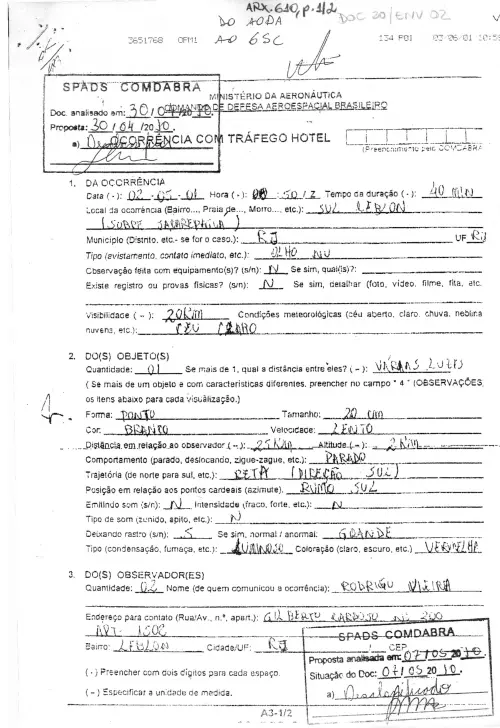 ARX.610, p.1/2
DO AODA
AO GSC
DOC 20/ENV 02
3651768 OPM1
134 P01 03/06/01
SPADS COMDABRA
Doc. analisado em: 30/04/2010.
Proposta: 30/04/2010.
a)
MINISTÉRIO DA AERONÁUTICA
DE DEFESA AEROESPACIAL BRASILEIRO
OCORRÊNCIA COM TRÁFEGO HOTEL
(Preenchimento pelo COMDABRA
1. DA OCORRÊNCIA
Data (-): 02-05-01 Hora (-): :50/Z Tempo da duração (-): 40 MIN
Local da ocorrência (Bairro..., Praia de..., Morro..., etc.): SUL LEBLON
(SOBRE JACAREPAGUÁ)
Município (Distrito, etc.- se for o caso.): RJ UF RJ
Tipo (avistamento, contato imediato, etc.): OLHO NU
Observação feita com equipamento(s)? (s/n): N Se sim, qual(is)?:
Existe registro ou provas físicas? (s/n): N Se sim, detalhar (foto, vídeo, filme, fita, etc.
Visibilidade (–): 20KM Condições meteorológicas (céu aberto, claro, chuva, neblina
nuvens, etc.): CÉU CLARO
2. DO(S) OBJETO(S)
Quantidade: 01 Se mais de 1, qual a distância entre eles? (–): VÁRIAS LUZES
(Se mais de um objeto e com características diferentes, preencher no campo "4" (OBSERVAÇÕES,
os itens abaixo para cada visualização.)
Forma: PONTO Tamanho: 20 cm
Cor: BRANCO Velocidade: LENTO
Distância em relação ao observador (–): 25KM Altitude (–): 2KM
Comportamento (parado, deslocando, zigue-zague, etc.): PARADO
Trajetória (de norte para sul, etc.): RETA (DIREÇÃO SUL)
Posição em relação aos pontos cardeais (azimute): RUMO SUL
Emitindo som (s/n): N Intensidade (fraco, forte, etc.): N
Tipo de som (zunido, apito, etc.): N
Deixando rastro (s/n): S Se sim, normal / anormal: GRANDE
Tipo (condensação, fumaça, etc.): LUMINOSO Coloração (claro, escuro, etc.) VERMELHA
3. DO(S) OBSERVADOR(ES)
Quantidade: 02 Nome (de quem comunicou a ocorrência): RODRIGO VIEIRA
Endereço para contato (Rua/Av., n.º, apart.): GILBERTO CARDOSO Nº 200
APT- 1502
Bairro: LEBLON Cidade/UF: RJ CEP
(-) Preencher com dois dígitos para cada espaço.
(–) Especificar a unidade de medida.
SPADS COMDABRA
Proposta analisada em: 07/05/2010.
Situação do Doc: 07/05/2010.
a) Desclassificado
A3-1/2